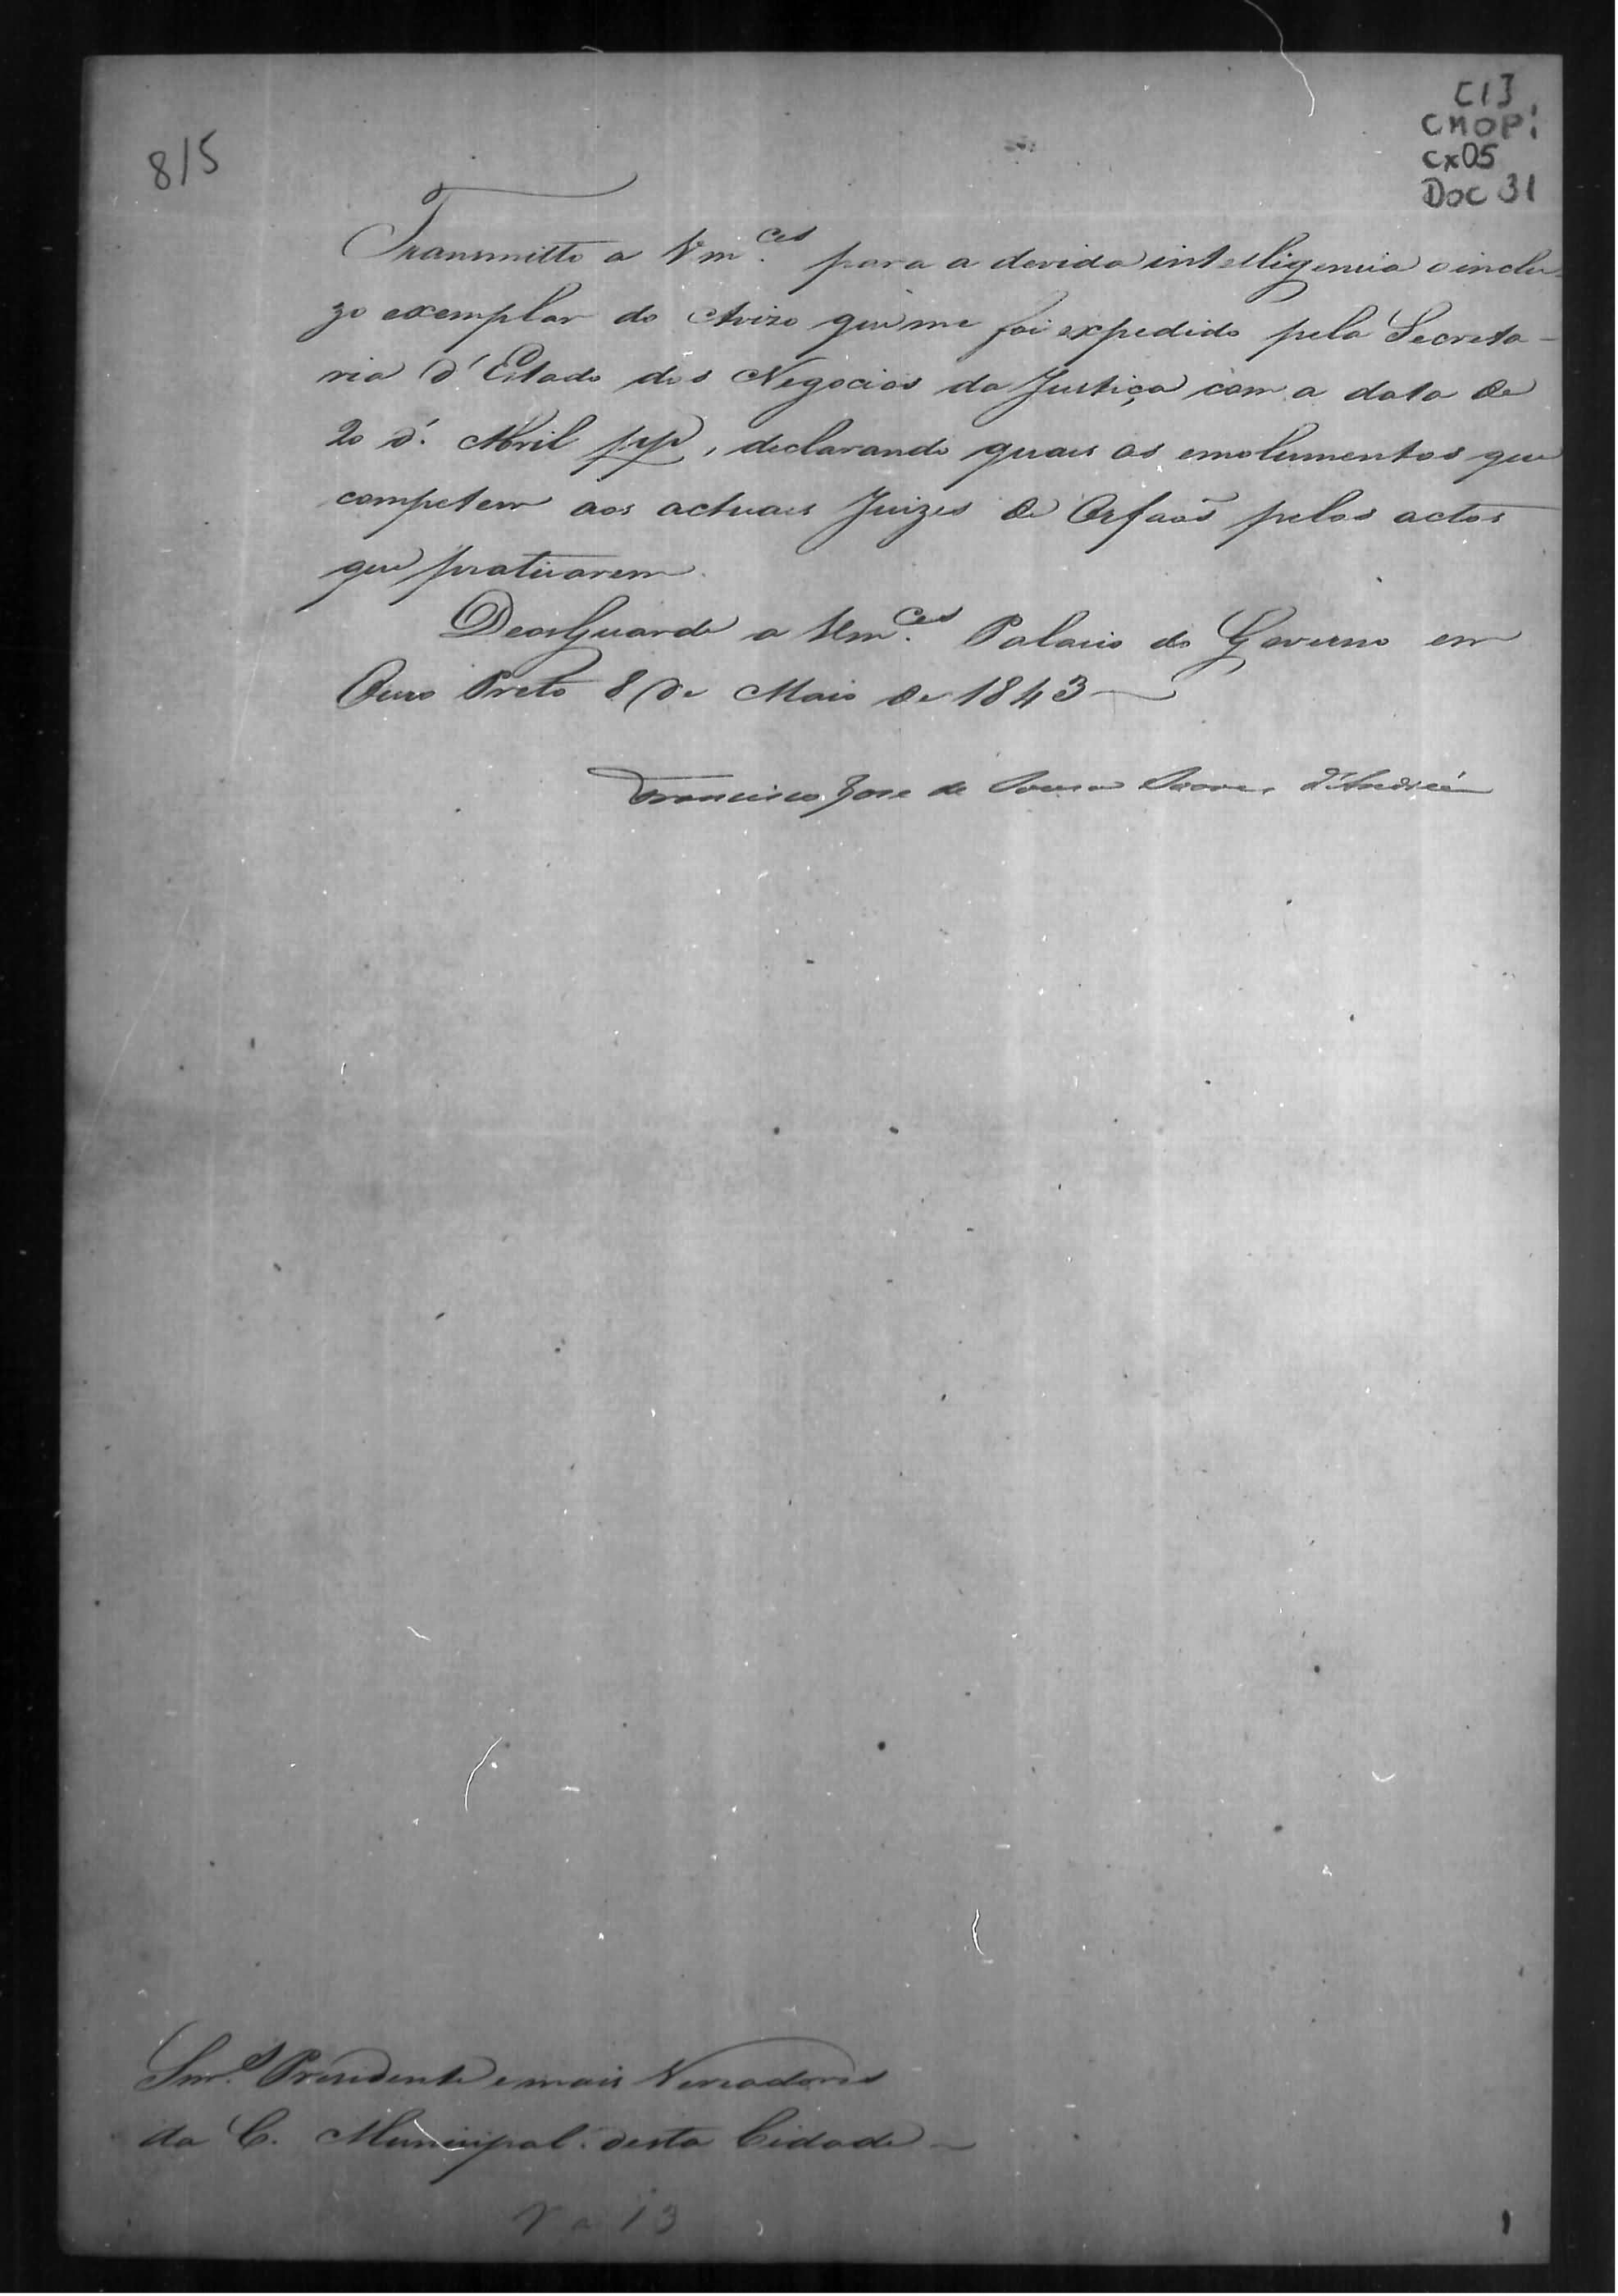 C13
CMOP:
cx05
Doc 31
8/5
Transmitto a Vm.ces para a devida intelligencia o inclu-
zo exemplar do Avizo que me foi expedido pela Secreta-
ria d'Estado dos Negocios da Justiça com a data de
20 d'. Abril pp, declarando quaes os emolumentos que
competem aos actuaes Juizes de Orfaõs pelos actos
que praticarem.
Deos Guarde a Vm.ces Palacio do Governo em
Ouro Preto 8 de Maio de 1843
Francisco Jose de Souza Soares d'Andréa
Snr.s Presidente e mais Vereadores
da C. Municipal desta Cidade
13
1